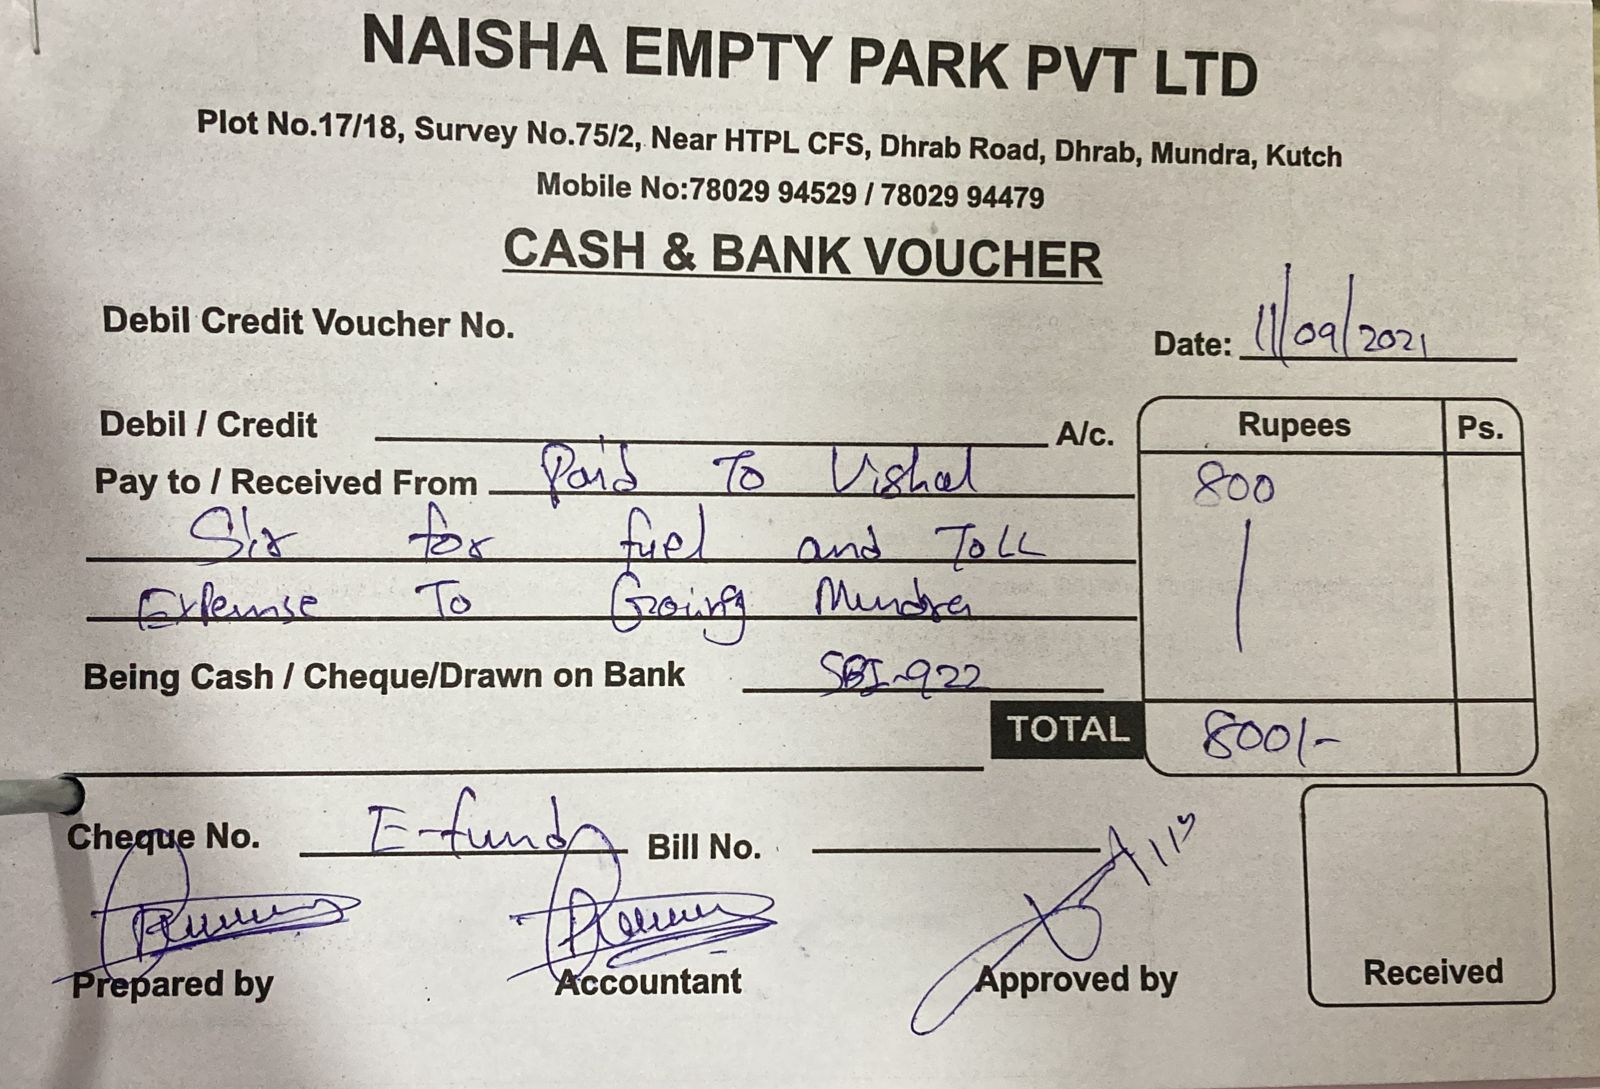 NAISHA EMPTY PARK PVT LTD
Plot No.17/18, Survey No.75/2, Near HTPL CFS, Dhrab Road, Dhrab, Mundra, Kutch
Mobile No:78029 94529 / 78029 94479
CASH & BANK VOUCHER
Debil Credit Voucher No.
Date: 11/09/2021
Debil / Credit A/c.
Rupees Ps.
Pay to / Received From Paid To Vishal
800
Sir for fuel and Toll
Expense To Going Mundra
Being Cash / Cheque/Drawn on Bank SBI-922
TOTAL 800/-
Cheque No. E-fund Bill No.
Prepared by Accountant Approved by Received